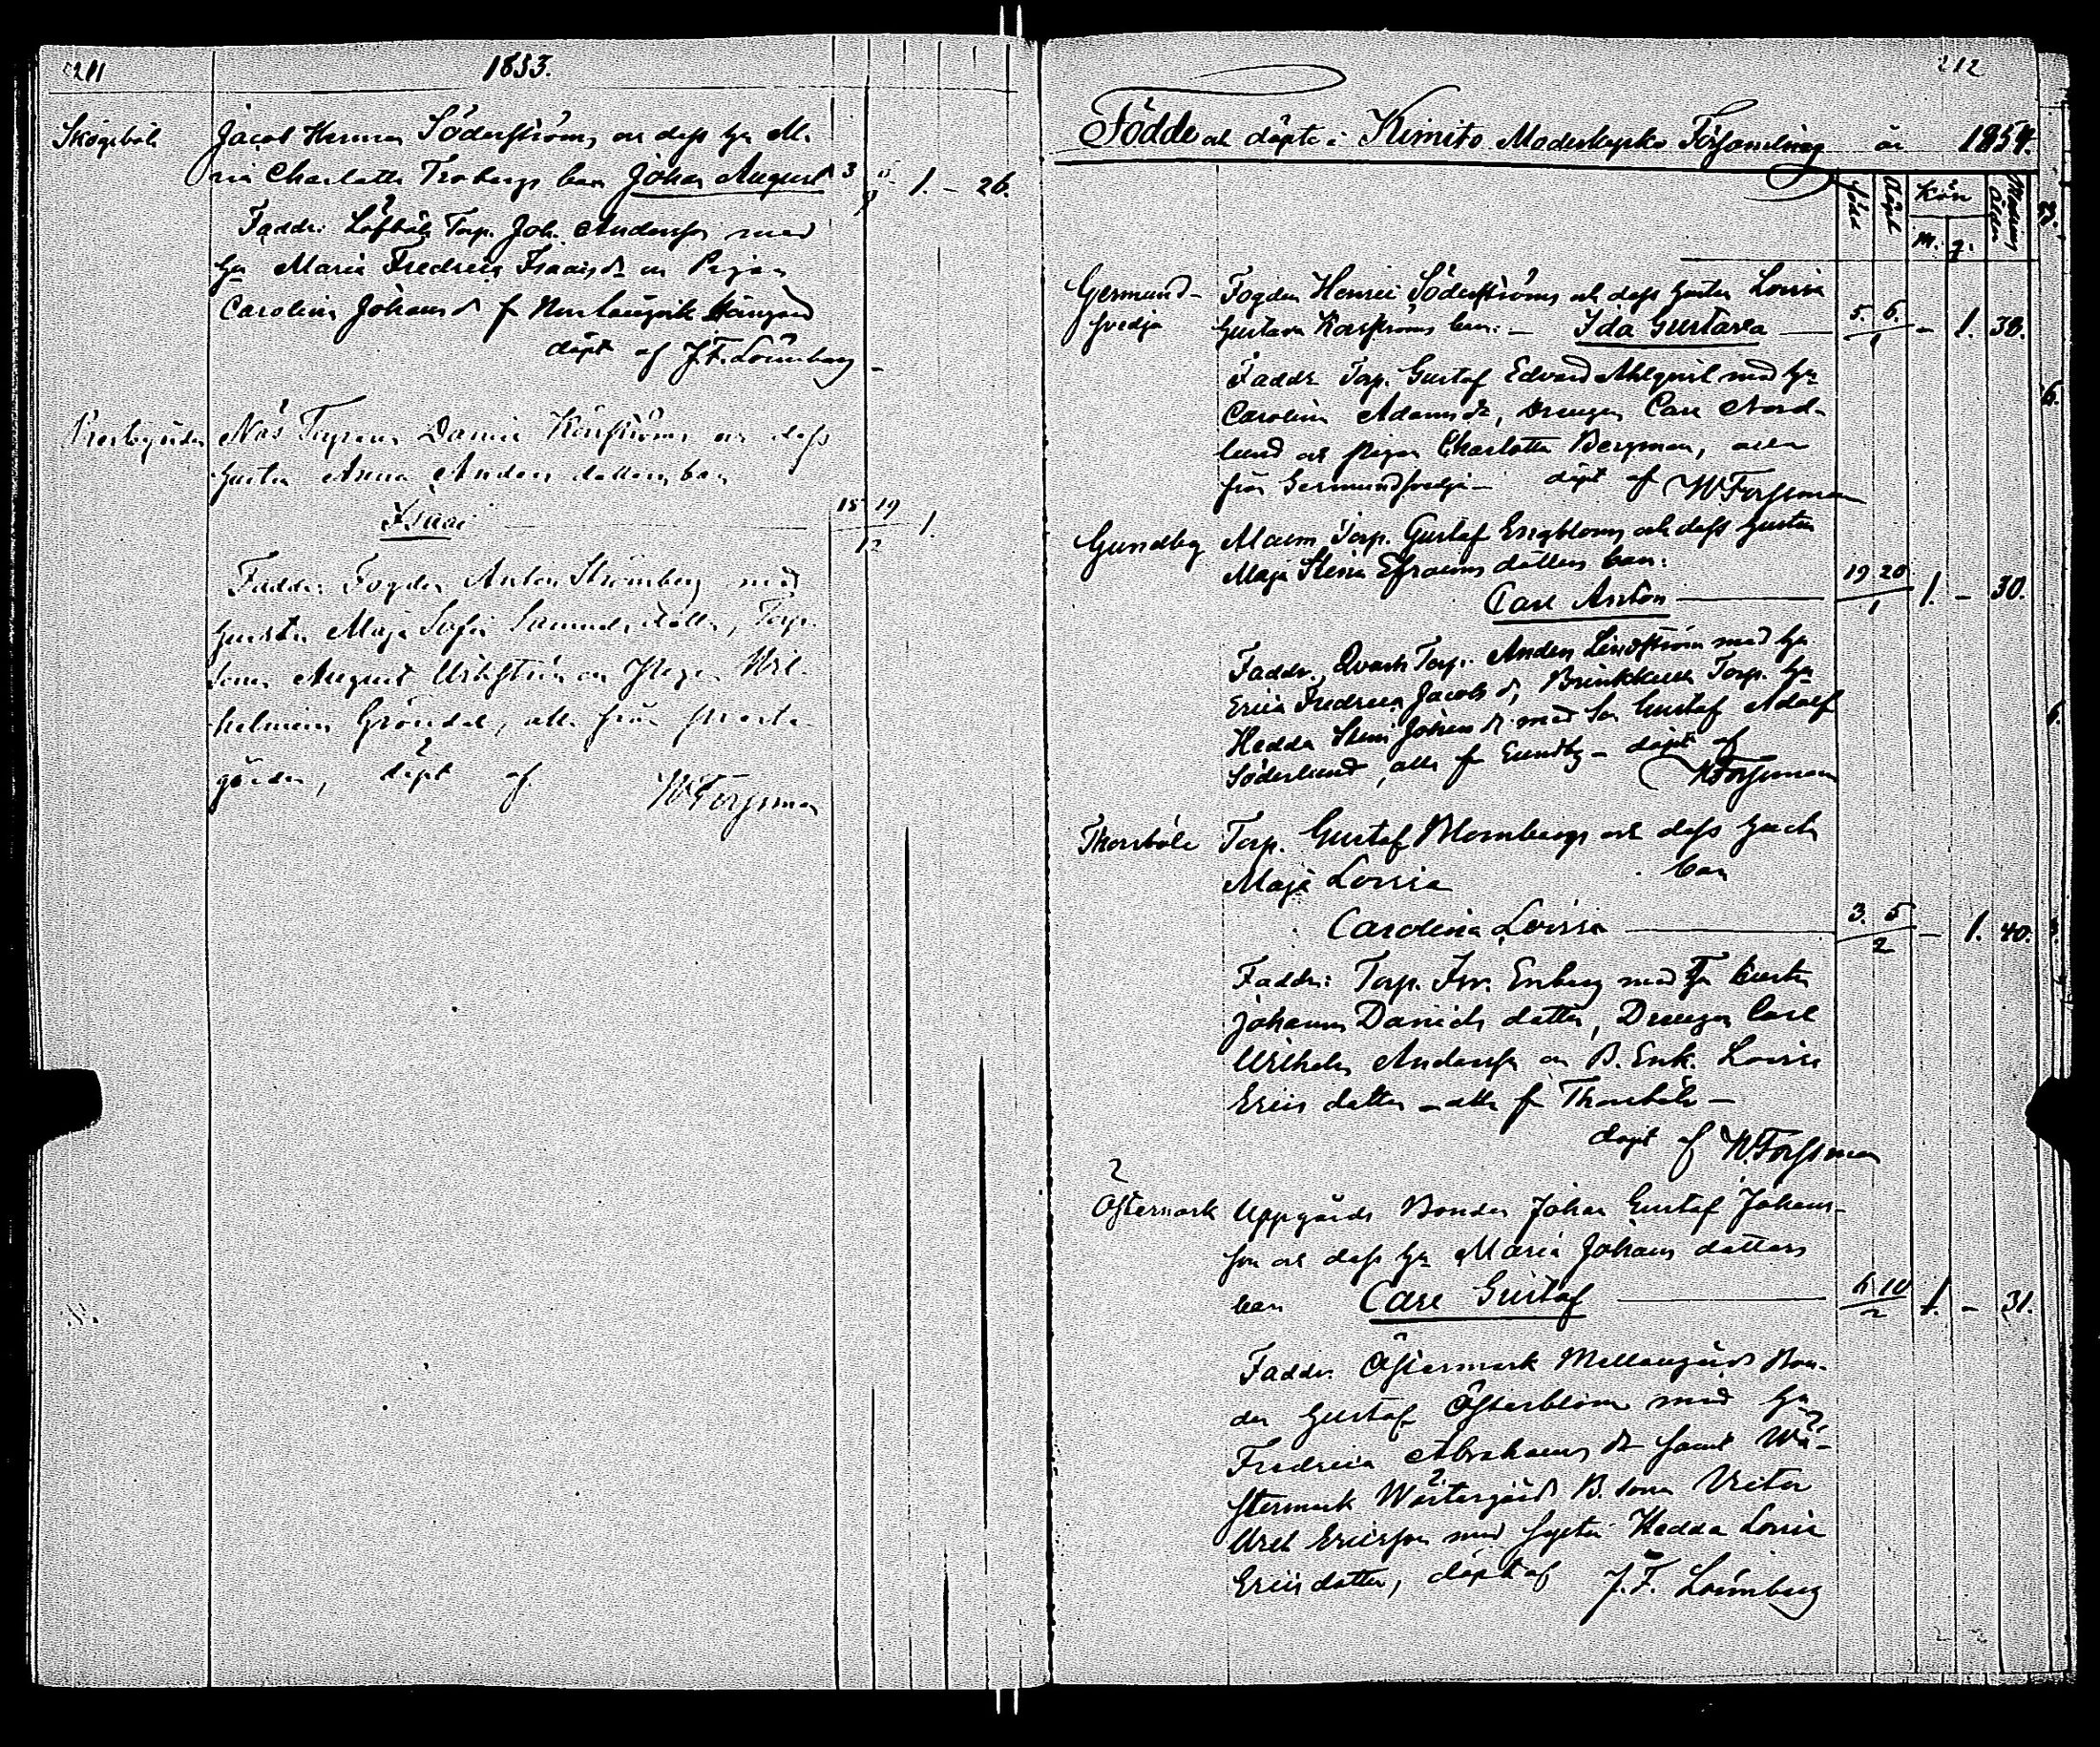 211 1853.
Skogsböle Jacob Herman Söderströms och dess hu Ma
ria Charlotta Frobergs barn Johan August 3 1. - 26.
Faddr: Löfböle Torp. Joh. Andersson med
hu Maria Fredrica Isaacs dr och Pigan
Carolina Johans dr fr Norrlångvik
döpt af J. F. Lönnberg
Prestgården Näs Daniel Korsströms och dess
hustru Anna Anders dotters barn
Isaac 15 19 1.
12
Faddr: Fogden Anton Strömberg med
hustru Maja Sofia Samuels dotter, Torp.
sonen August och Pigan Wil-
helmina Gröndal, alla från Prest-
gården, döpt af W Forssman
212
Födde och döpte i Kimito Moderkyrko Församling år 1854.
Född Döpt Kön Modrens ålder
M. Q.
Germund- Fogden Henric Söderströms och dess hustru Lovisa
svedja Gustava Korsströms barn: - Ida Gustava 5. 6. - 1. 38.
1
Faddr Torp. Gustaf Edvard Ahlqvist med hu
Carolina Adams dr, Drengen Carl Nord-
lund och pigan Charlotta Bergman, alla
från Germundsvedja - döpt af W Forssman
Gundby Malm Torp. Gustaf Engbloms och dess hustru
Maja Stina Efraims dotters barn:
Carl Anton 19 20 1. - 30.
1
Faddr. Qvarn Torp. Anders Lindström med hu
Erica Fredrica Jacobs dr, Brinkkulla Torp. hu
Hedda Stina Johans dr med son Gustaf Adolf
Söderlund, alla fr Gundby - döpt af
W Forssman
Thorsböle Torp. Gustaf Blombergs och dess hustru
Maja Lovisa barn
Carolina Lovisa 3. 5 - 1. 40.
2
Faddr: Torp. Isr. Enberg med hustru
Johanna Daniels dotter, Drengen Carl
Wilhelm Andersson och B. Enk. Lovisa
Erics dotter - alla fr Thorsböle -
döpt af W. Forssman
Östermark Uppgårds Bonden Johan Gustaf Johans-
son och dess hu Maria Johans dotters
barn Carl Gustaf 6 10 1. - 31.
2
Faddr. Östermark Mellangårds Bon-
den Gustaf Österblom med hu
Fredrica Abrahams dr samt We-
stermark Westergårds B. sonen Victor
Ericsson med syster Hedda Lovisa
Ericsdotter, döpt af J. F. Lönnberg